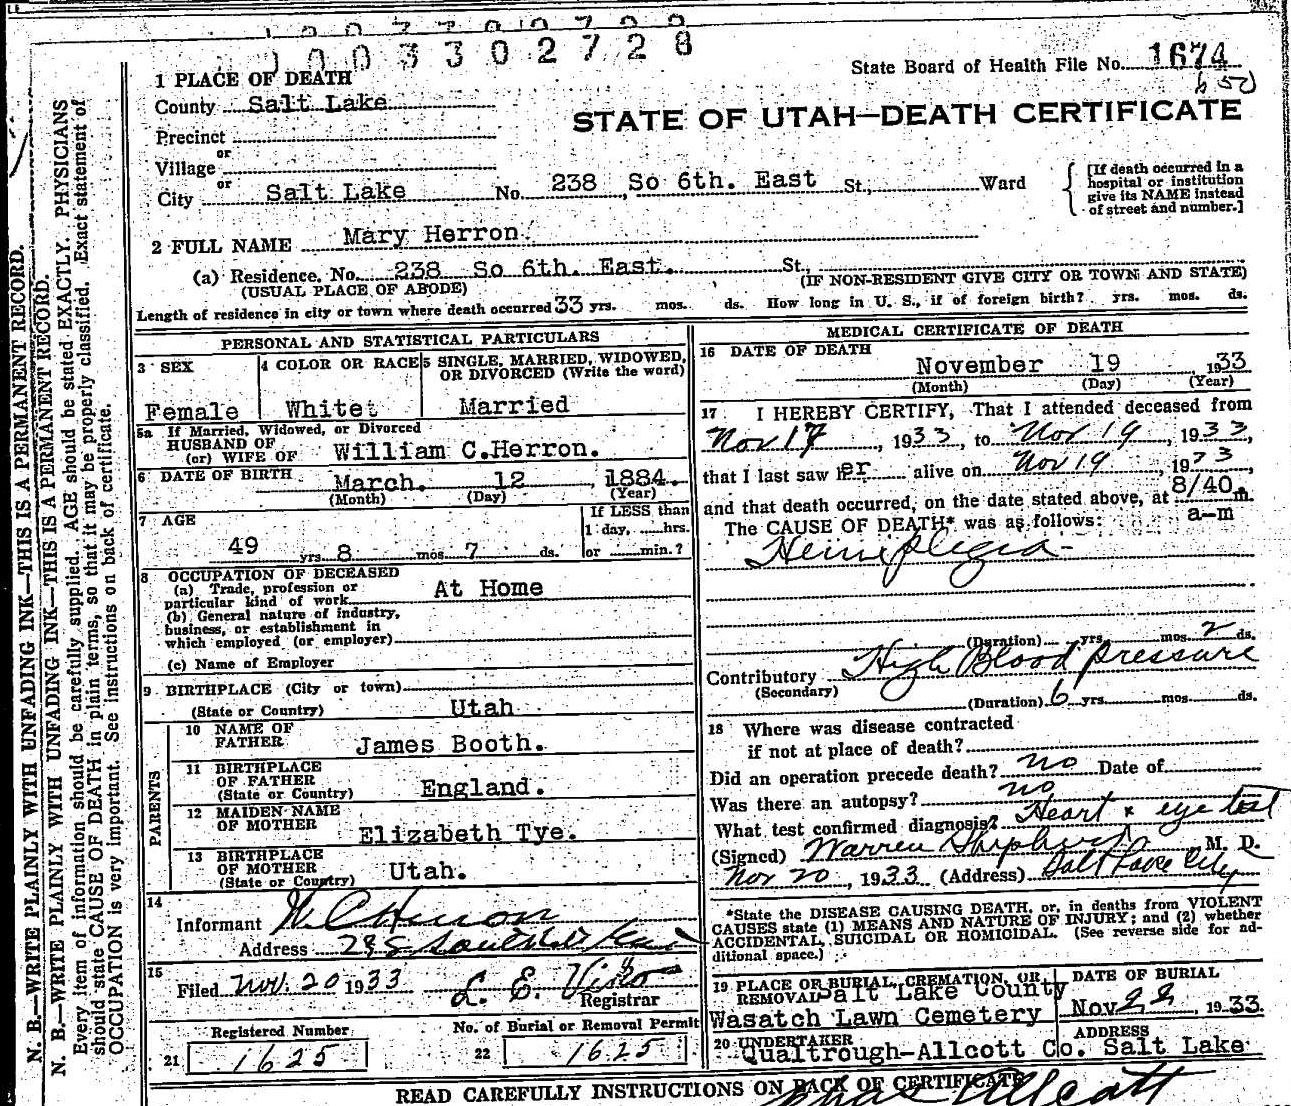 1003302728
State Board of Health File No. 1674
650
STATE OF UTAH—DEATH CERTIFICATE
1 PLACE OF DEATH
County Salt Lake
Precinct
or
Village
or
City Salt Lake No. 238 So 6th. East St., Ward
[If death occurred in a hospital or institution give its NAME instead of street and number.]
2 FULL NAME Mary Herron.
(a) Residence. No. 238 So 6th. East. St.
(USUAL PLACE OF ABODE) (IF NON-RESIDENT GIVE CITY OR TOWN AND STATE)
Length of residence in city or town where death occurred 33 yrs. mos. ds. How long in U. S., if of foreign birth? yrs. mos. ds.
PERSONAL AND STATISTICAL PARTICULARS
3 SEX
Female
4 COLOR OR RACE
White
5 SINGLE, MARRIED, WIDOWED, OR DIVORCED (Write the word)
Married
5a If Married, Widowed, or Divorced
HUSBAND OF
(or) WIFE OF William C.Herron.
6 DATE OF BIRTH March. 12, 1884.
(Month) (Day) (Year)
7 AGE
49 yrs. 8 mos. 7 ds.
If LESS than
1 day, hrs.
or min.?
8 OCCUPATION OF DECEASED
(a) Trade, profession or
particular kind of work At Home
(b) General nature of industry,
business, or establishment in
which employed (or employer)
(c) Name of Employer
9 BIRTHPLACE (City or town)
(State or Country) Utah
PARENTS
10 NAME OF
FATHER James Booth.
11 BIRTHPLACE
OF FATHER
(State or Country) England.
12 MAIDEN NAME
OF MOTHER Elizabeth Tye.
13 BIRTHPLACE
OF MOTHER
(State or Country) Utah.
14
Informant W C Herron
Address
15
Filed Nov. 20 1933 L. E. Registrar
21 Registered Number
1625
22 No. of Burial or Removal Permit
1625
MEDICAL CERTIFICATE OF DEATH
16 DATE OF DEATH
November 19 1933
(Month) (Day) (Year)
17 I HEREBY CERTIFY, That I attended deceased from
Nov 17, 1933, to Nov 19, 1933,
that I last saw her alive on Nov 19, 1933,
and that death occurred, on the date stated above, at 8/40. m.
a-m
The CAUSE OF DEATH* was as follows:
Hemiplegia
(Duration) yrs. mos. 2 ds.
Contributory High Blood pressure
(Secondary)
(Duration) 6 yrs. mos. ds.
18 Where was disease contracted
if not at place of death?
Did an operation precede death? no Date of
Was there an autopsy? no
What test confirmed diagnosis? Heart & eye test
(Signed) Warren Shepherd, M. D.
Nov 20, 1933 (Address) Salt Lake City
*State the DISEASE CAUSING DEATH, or, in deaths from VIOLENT
CAUSES state (1) MEANS AND NATURE OF INJURY; and (2) whether
ACCIDENTAL, SUICIDAL OR HOMICIDAL. (See reverse side for ad-
ditional space.)
19 PLACE OR BURIAL, CREMATION, OR
REMOVAL Salt Lake County
Wasatch Lawn Cemetery
DATE OF BURIAL
Nov 22, 1933.
20 UNDERTAKER
Qualtrough-Allcott Co.
ADDRESS
Salt Lake
READ CAREFULLY INSTRUCTIONS ON BACK OF CERTIFICATE
N. B.—WRITE PLAINLY WITH UNFADING INK—THIS IS A PERMANENT RECORD.
N. B.—WRITE PLAINLY WITH UNFADING INK—THIS IS A PERMANENT RECORD.
Every item of information should be carefully supplied. AGE should be stated EXACTLY. PHYSICIANS
should state CAUSE OF DEATH in plain terms, so that it may be properly classified. Exact statement of
OCCUPATION is very important. See instructions on back of certificate.